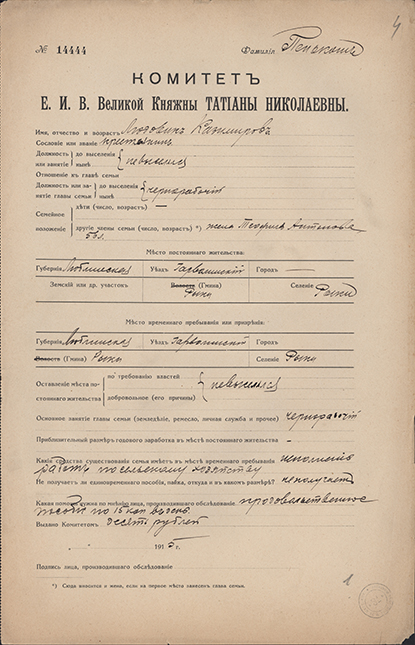 4
№ 14444 Фамилія
КОМИТЕТЪ
Е. И. В. Великой Княжны ТАТІАНЫ НИКОЛАЕВНЫ.
Имя, отчество и возрастъ Людовикъ Казимировъ
Сословіе или званіе крестьянинъ
Должность или занятіе до выселенія нынѣ { невыселялся
Отношеніе къ главѣ семьи
Должность или занятіе главы семьи до выселенія нынѣ { чернорабочій
Семейное положеніе дѣти (число, возрастъ) —
другіе члены семьи (число, возрастъ) *) жена Теофила Антонова
55 л.
Мѣсто постояннаго жительства:
Губернія Люблинская Уѣздъ Гарволинскій Городъ —
Земскій или др. участокъ Волость (Гмина) Рыки Селеніе Рыки
Мѣсто временнаго пребыванія или призрѣнія:
Губернія Люблинская Уѣздъ Гарволинскій Городъ
Волость (Гмина) Рыки Селеніе Рыки
Оставленіе мѣста постояннаго жительства по требованію властей добровольное (его причины) { невыселялся
Основное занятіе главы семьи (земледѣліе, ремесло, личная служба и прочее) чернорабочій
Приблизительный размѣръ годового заработка въ мѣстѣ постояннаго жительства -
Какія средства существованія семья имѣетъ въ мѣстѣ временнаго пребыванія исполняя
работы по сельскому хозяйству
Не получаетъ ли единовременнаго пособія, пайка, откуда и въ какомъ размѣрѣ? не получаетъ
Какая помощь нужна по мнѣнію лица, производившаго обслѣдованіе продовольственное
пособіе по 15 коп въ день
Выдано Комитетомъ десять рублей
1915 г.
Подпись лица, производившаго обслѣдованіе
1
*) Сюда вносится и жена, если на первое мѣсто занесенъ глава семьи.